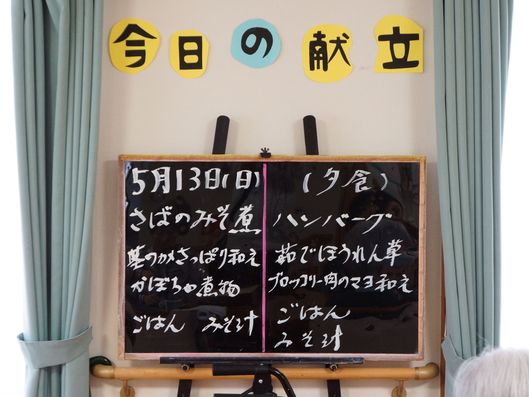 今日の献立
5月13日(日)
さばのみそ煮
茎わかめさっぱり和え
かぼちゃ煮物
ごはん みそ汁
(夕食)
ハンバーグ
茹でほうれん草
ブロッコリー肉のマヨ和え
ごはん
みそ汁